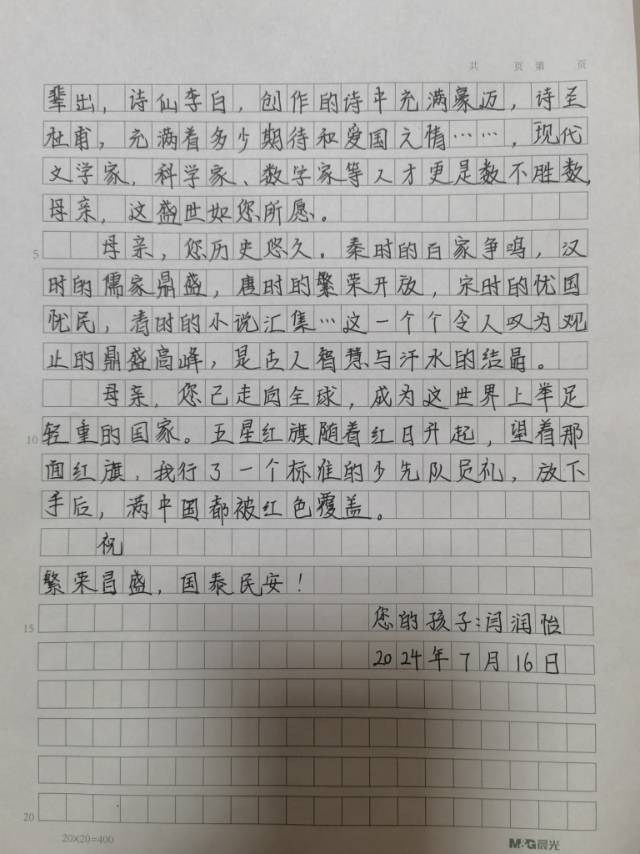 共 页 第 页
辈出，诗仙李白，创作的诗中充满豪迈，诗圣
杜甫，充满着多少期待和爱国之情……，现代
文学家、科学家、数学家等人才更是数不胜数，
母亲，这盛世如您所愿。
5 母亲，您历史悠久。秦时的百家争鸣，汉
时的儒家鼎盛，唐时的繁荣开放，宋时的忧国
忧民，清时的小说汇集…这一个个令人叹为观
止的鼎盛高峰，是古人智慧与汗水的结晶。
母亲，您已走向全球，成为这世界上举足
10 轻重的国家。五星红旗随着红日升起，望着那
面红旗，我行了一个标准的少先队员礼，放下
手后，满中国都被红色覆盖。
祝
繁荣昌盛，国泰民安！
15 您的孩子：闫润怡
2024年7月16日
20
20×20=400 M&G晨光